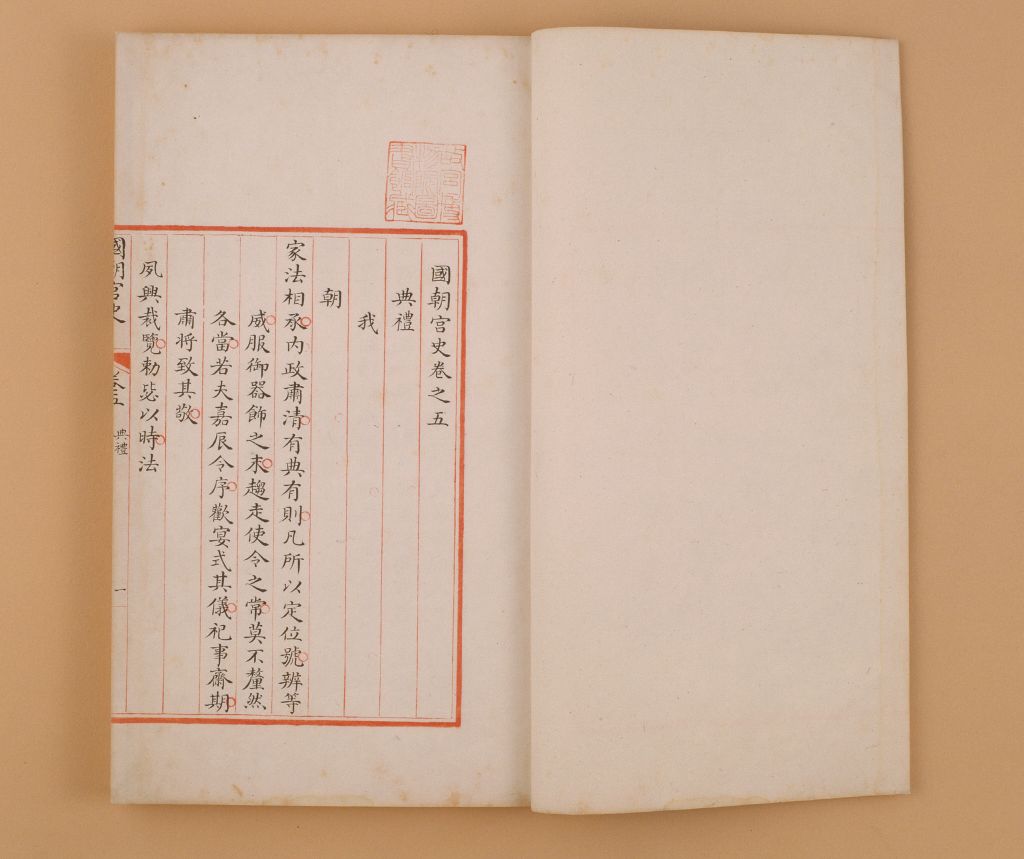 國朝宮史卷之五
典禮
我
朝
家法相承內政肅清有典有則凡所以定位號辨等
威服御器飾之末趨走使令之常莫不釐然
各當若夫嘉辰令序歡宴式其儀祀事齋期
肅將致其敬
夙興裁覽勅毖以時法
國朝宮史
卷五
典禮
一